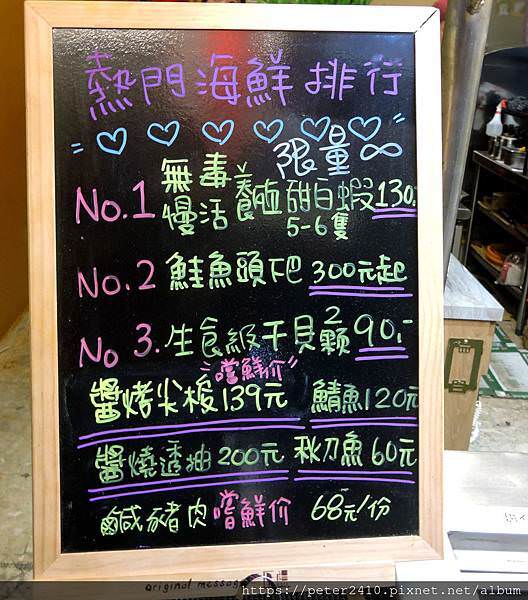 熱門海鮮排行
限量∞
No.1 無毒慢活養殖甜白蝦130.-
5-6隻
No.2 鮭魚頭下巴 300元起
No 3. 生食級干貝2顆90.-
"嚐鮮价"
醬烤尖梭139元 鯖魚120元
醬燒透抽200元 秋刀魚60元
鹹豬肉嚐鮮价 68元/份
original message
https://peter2410.pixnet.net/album